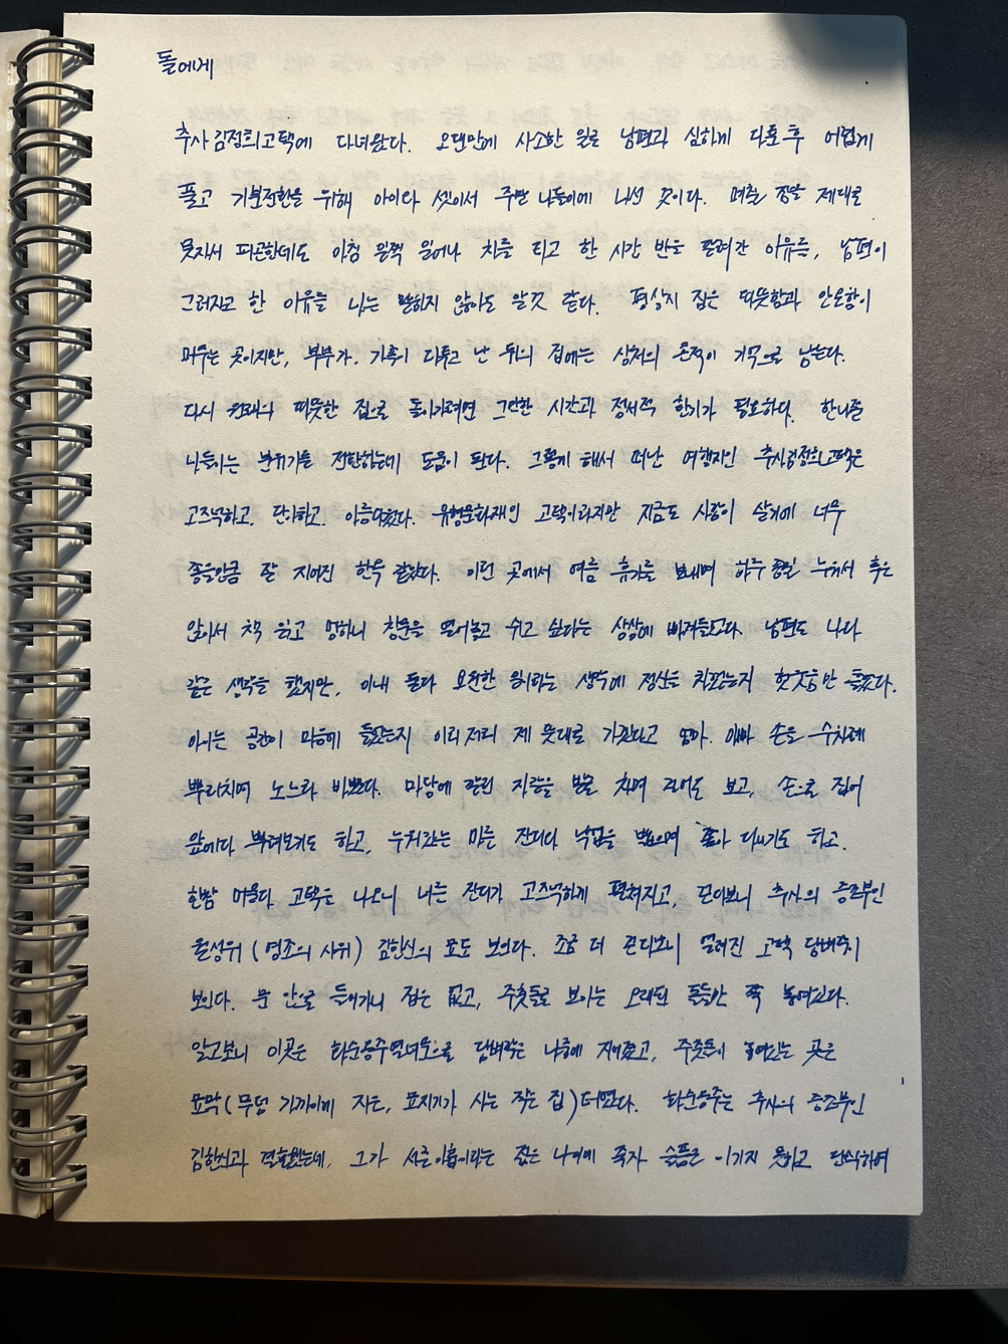 돌에게
추사김정희고택에 다녀왔다. 오랜만에 사소한 일로 남편과 심하게 다툰 후 어렵게
풀고 기분전환을 위해 아이와 셋이서 주말 나들이에 나선 것이다. 며칠 잠을 제대로
못자서 피곤한데도 아침 일찍 일어나 차를 타고 한 시간 반을 달려간 이유를, 남편이
그러자고 한 이유를 나는 말하지 않아도 알것 같다. 평상시 집은 따뜻함과 안온함이
머무는 곳이지만, 부부가, 가족이 다투고 난 뒤의 집에는 상처의 흔적이 기억으로 남는다.
다시 원래의 따뜻한 집으로 돌아가려면 그만한 시간과 정서적 환기가 필요하다. 한나절
나들이는 분위기를 전환하는데 도움이 된다. 그렇게 해서 떠난 여행지인 추사김정희고택은
고즈넉하고, 단아하고, 아름다웠다. 유형문화재인 고택이라지만 지금도 사람이 살기에 너무
좋을만큼 잘 지어진 한옥 같았다. 이런 곳에서 여름 휴가를 보내며 하루 종일 누워서 혹은
앉아서 책 읽고 멍하니 창문을 열어놓고 쉬고 싶다는 상상에 빠져들었다. 남편도 나와
같은 생각을 했지만, 이내 둘다 요원한 일이라는 생각에 정신을 차렸는지 헛웃음만 흘렸다.
아이는 공간이 마음에 들었는지 이리저리 제 뜻대로 가겠다고 엄마, 아빠 손을 수차례
뿌리치며 노느라 바빴다. 마당에 깔린 자갈을 발로 차며 걸어도 보고, 손으로 집어
앞에다 뿌려보기도 하고, 누워있는 마른 잔디와 낙엽을 밟으며 쫓아 다니기도 하고.
한참 머물다 고택을 나오니 너른 잔디가 고즈넉하게 펼쳐지고, 걷다보니 추사의 증조부인
월성위(영조의 사위) 김한신의 묘도 보인다. 조금 더 걷다보니 열려진 고택 담벼락이
보인다. 문 안으로 들어가니 집은 없고, 주춧돌로 보이는 오래된 돌들만 쭉 놓여있다.
알고보니 이곳은 화순옹주열녀문으로 담벼락은 나중에 지어졌고, 주춧돌이 놓여있는 곳은
묘막(무덤 가까이에 지은, 묘지기가 사는 작은 집)터였다. 화순옹주는 추사의 증조부인
김한신과 결혼했는데, 그가 서른아홉이라는 젊은 나이에 죽자 슬픔을 이기지 못하고 단식하여